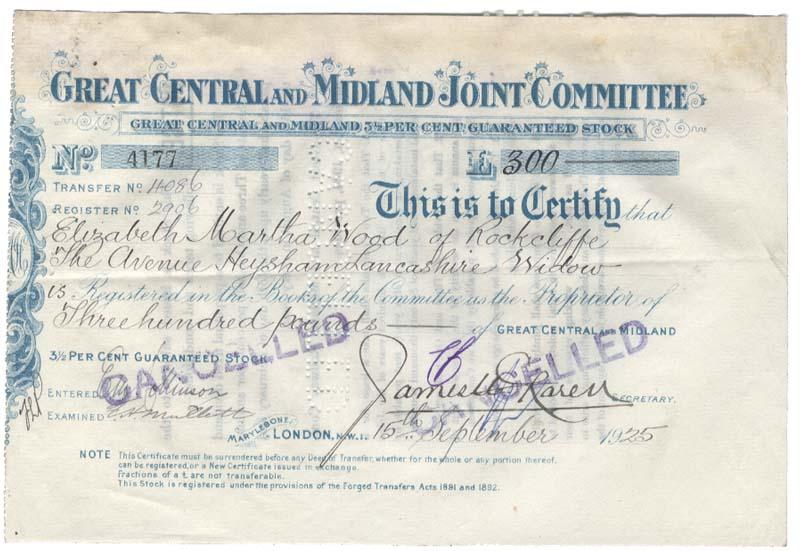 GREAT CENTRAL AND MIDLAND JOINT COMMITTEE
GREAT CENTRAL AND MIDLAND 3½ PER CENT. GUARANTEED STOCK
No. 4177 £ 300
TRANSFER No. 4086
REGISTER No. 2906
This is to Certify that
Elizabeth Martha Wood of Rockcliffe
The Avenue Heysham Lancashire Widow
is Registered in the Books of the Committee as the Proprietor of
Three hundred pounds of GREAT CENTRAL AND MIDLAND
3½ PER CENT GUARANTEED STOCK
CANCELLED
CANCELLED
ENTERED
James SECRETARY.
EXAMINED
MARYLEBONE,
LONDON, N.W.1. 15th September 1925
NOTE This Certificate must be surrendered before any Deed of Transfer, whether for the whole or any portion thereof,
can be registered, or a New Certificate issued in exchange.
Fractions of a £ are not transferable.
This Stock is registered under the provisions of the Forged Transfers Acts 1891 and 1892.